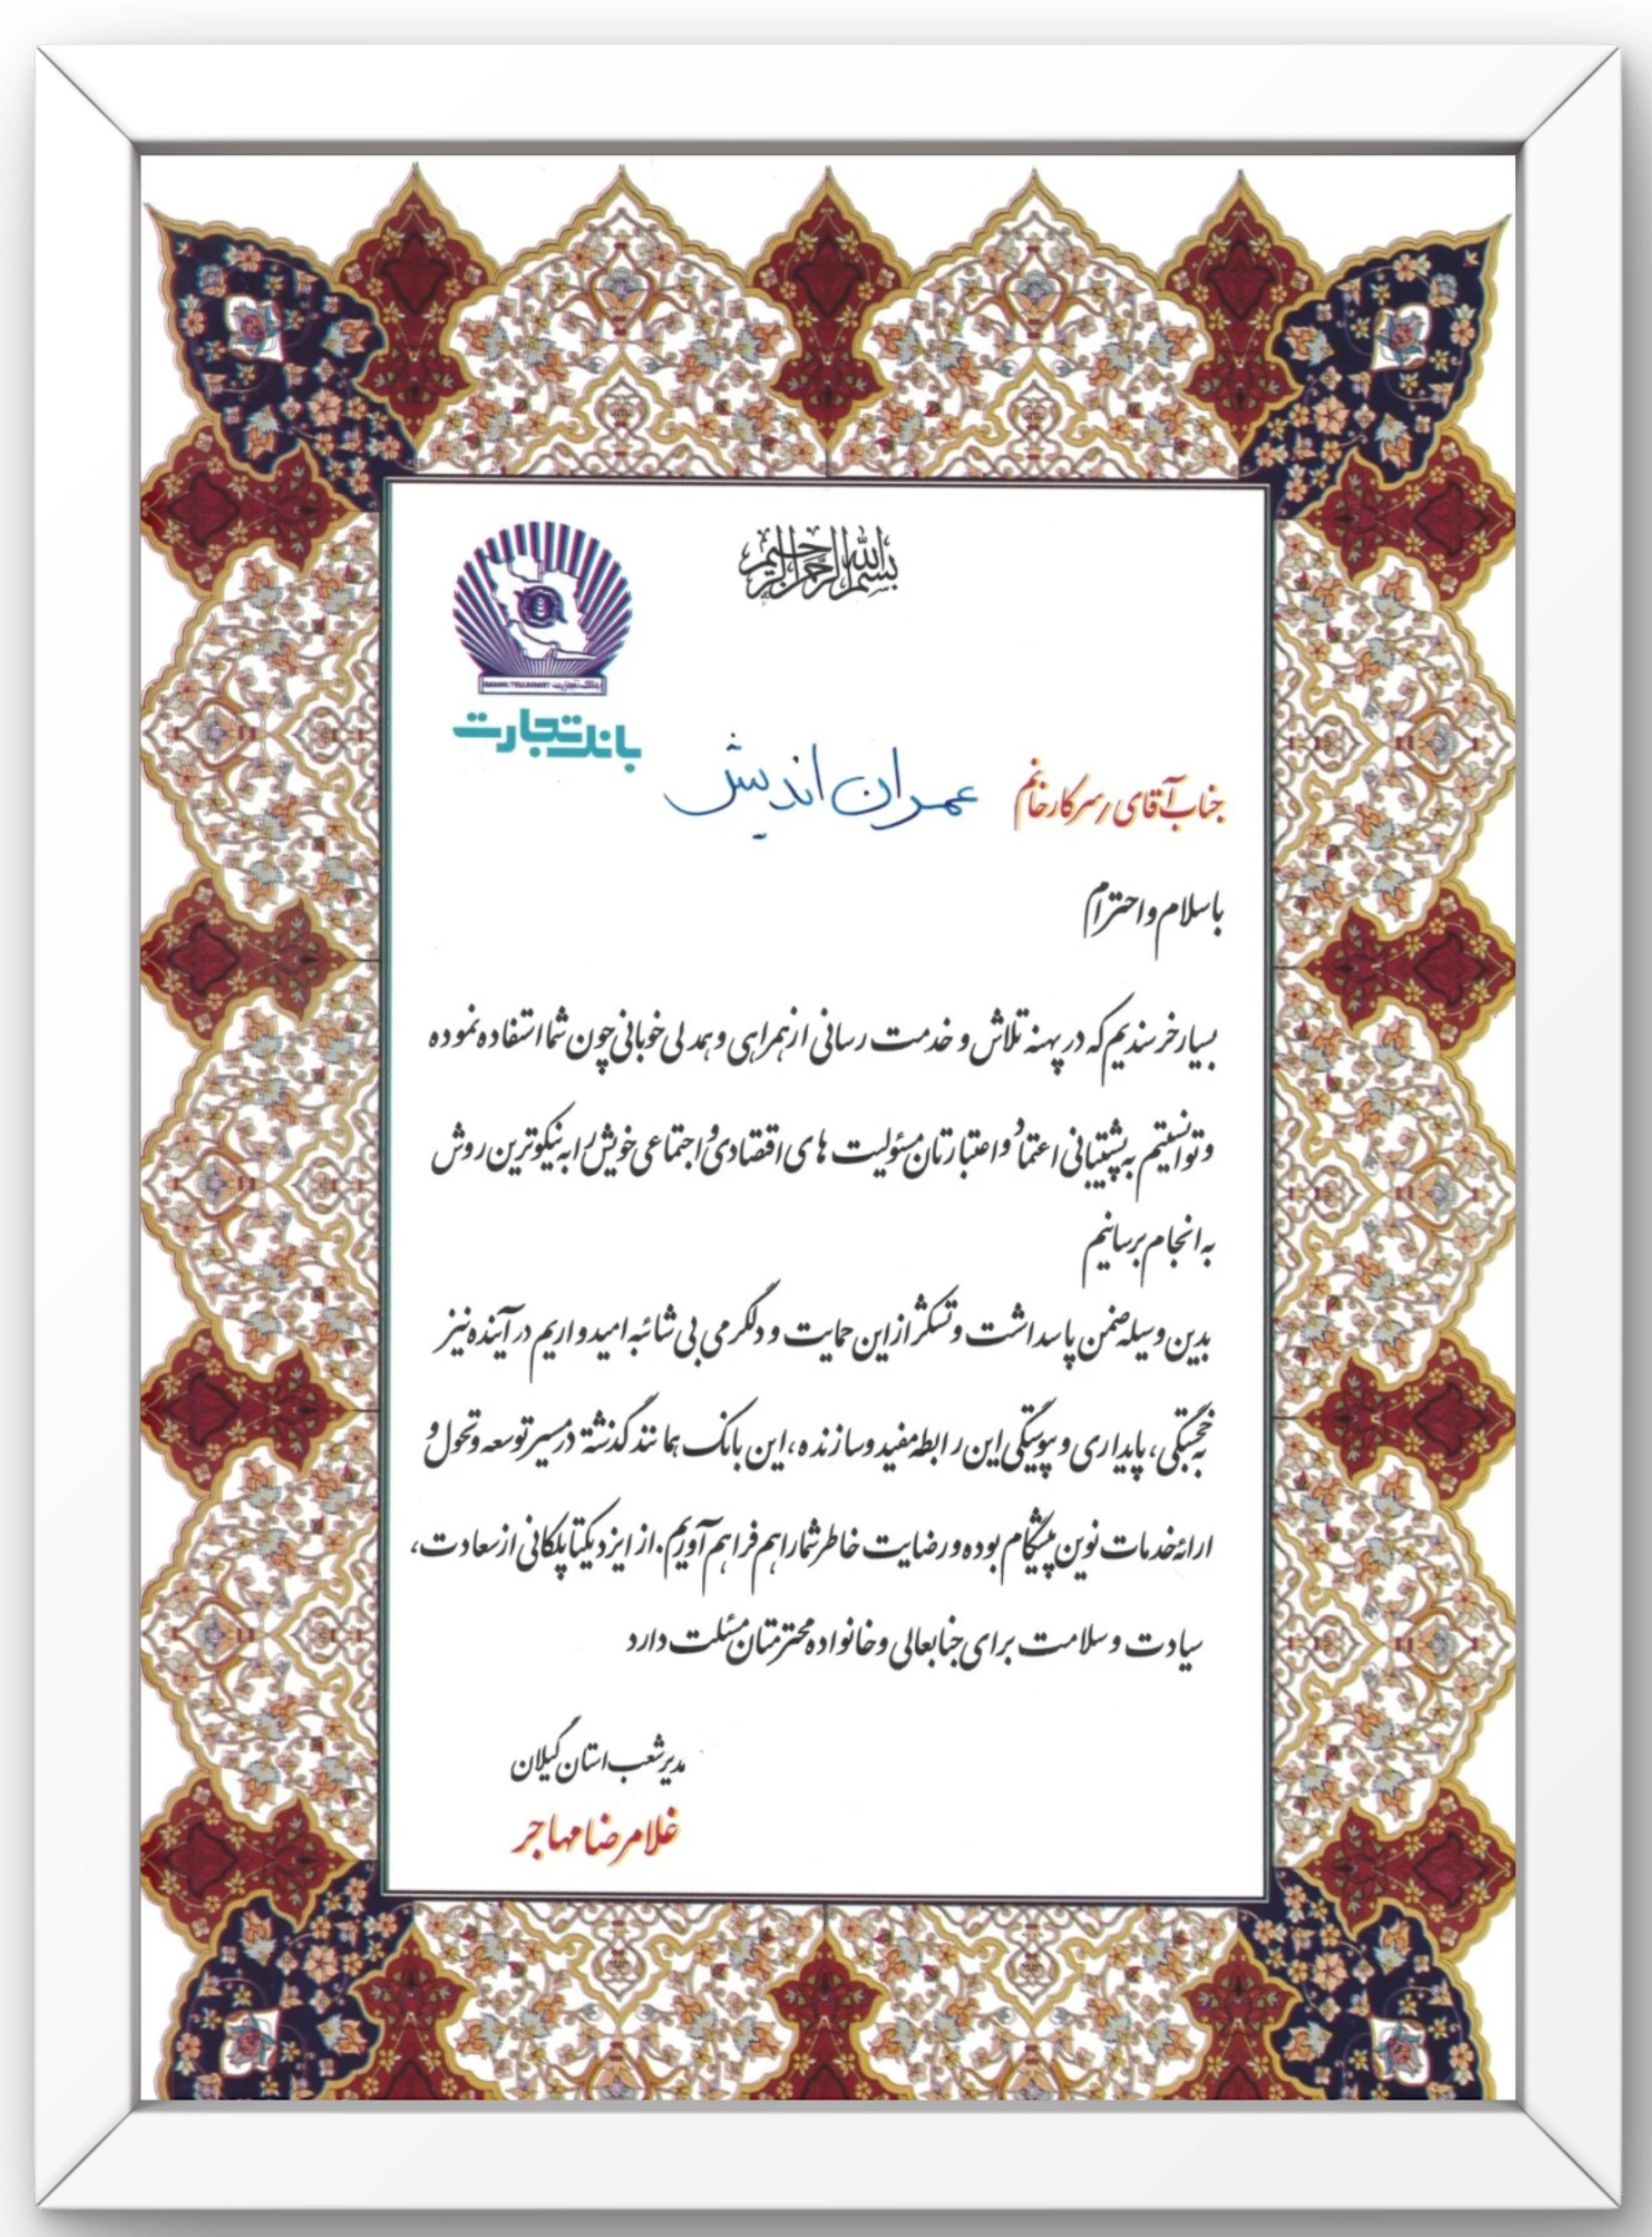 بسم الله الرحمن الرحیم
بانک تجارت
جناب آقای / سرکار خانم عمران اندیش
با سلام و احترام
بسیار خرسندیم که در پهنه تلاش و خدمت رسانی از همراهی و همدلی خوبانی چون شما استفاده نموده
و توانستیم به پشتیبانی اعتماد و اعتبارتان مسئولیت های اقتصادی و اجتماعی خویش را به نیکوترین روش
به انجام برسانیم
بدین وسیله ضمن پاسداشت و تشکر از این حمایت و دلگرمی بی شائبه امیدواریم در آینده نیز
به خجستگی، پایداری و پیوستگی این رابطه مفید و سازنده، این بانک همانند گذشته در مسیر توسعه و تحول و
ارائه خدمات نوین پیشگام بوده و رضایت خاطر شما را هم فراهم آوریم. از ایزد یکتا پلکانی از سعادت،
سیادت و سلامت برای جنابعالی و خانواده محترمتان مسئلت دارد
مدیر شعب استان گیلان
غلامرضا مهاجر